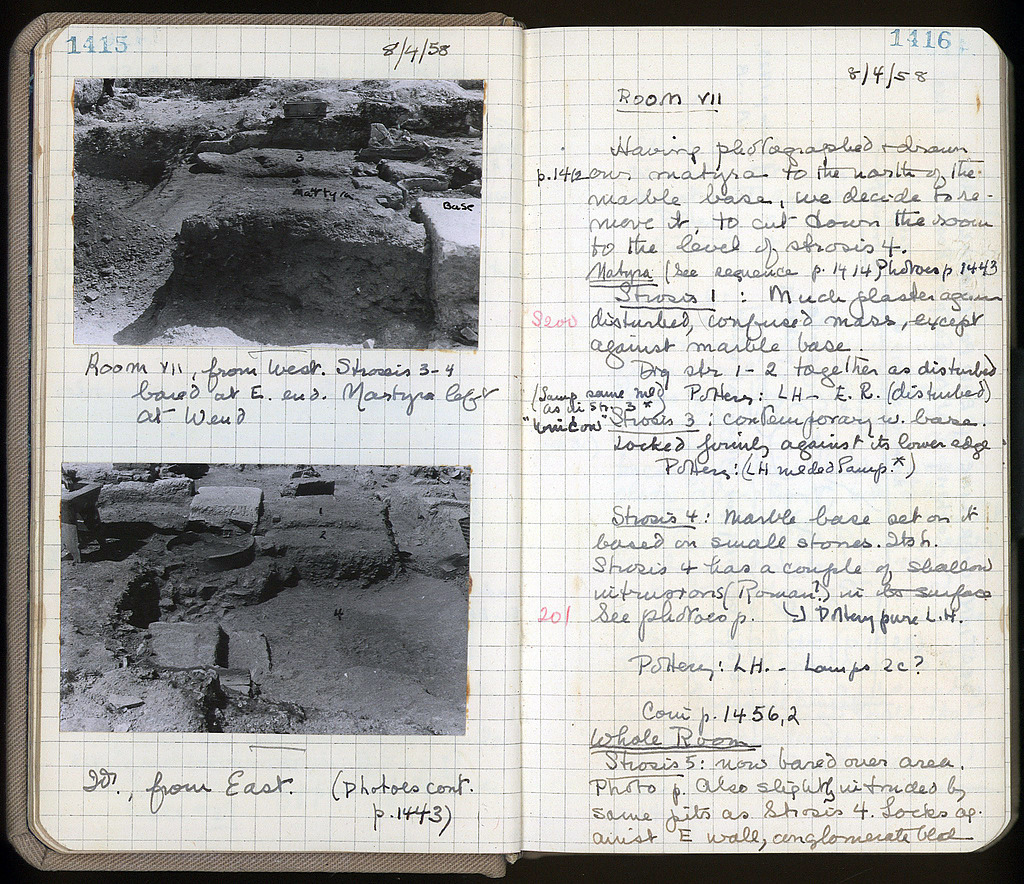 1415
8/4/58
3
Martyra
Base
Room VII, from West. Strosis 3-4
bared at E. end. Martyra left
at W end
1
2
4
Id., from East. (Photoes cont.
p.1443)
1416
8/4/58
Room VII
Having photographed + drawn
p.1412 our matyra to the north of the
marble base, we decide to re-
move it, to cut down the room
to the level of strosis 4.
Matyra (See sequence p. 1414 Photoes p 1443
Strosis 1 : Much plaster again
S200 disturbed, confused mass, except
against marble base.
Dig str 1-2 together as disturbed
(Lamp same
as in str. 3*) Pottery: LH - E.R. (disturbed)
Strosis 3 : contemporary w. base.
Locked firmly against its lower edge
Pottery: (LH Lamp.*)
Strosis 4: Marble base set on it
based on small stones.
Strosis 4 has a couple of shallow
intrusions (Roman?) in its surface
201 See photoes p. Pottery pure L.H.
Pottery: LH. - Lamps 2c?
Coin p. 1456,2
Whole Room
Strosis 5: now bared over area.
Photo p. Also slightly intruded by
same pits as Strosis 4. Locks ag-
ainst E wall, conglomerate